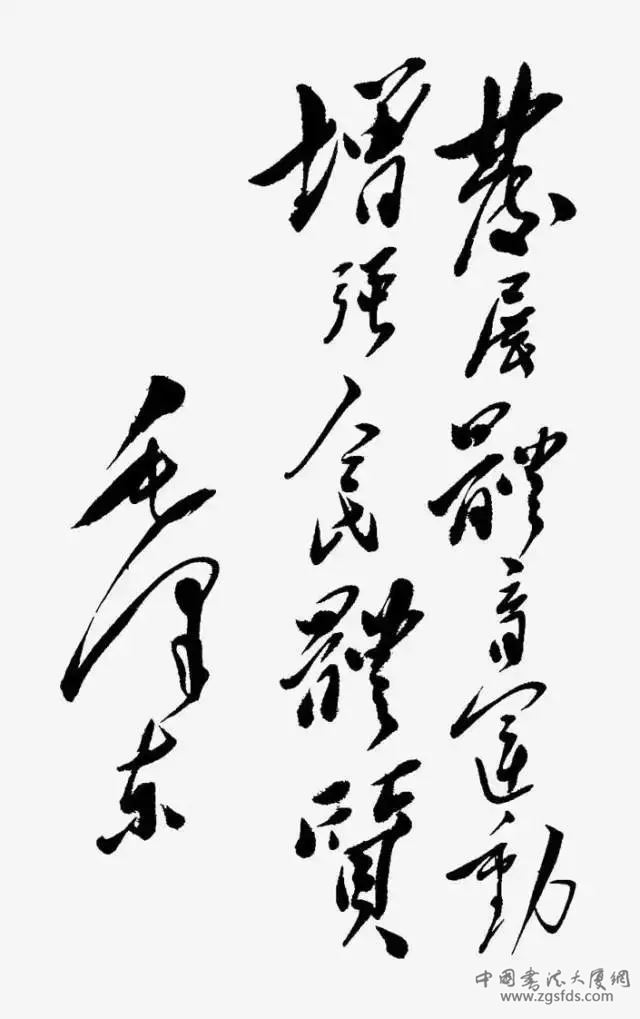 發展體育運動
增強人民體質
毛澤东
中国书法大厦網
www.zgsfds.com